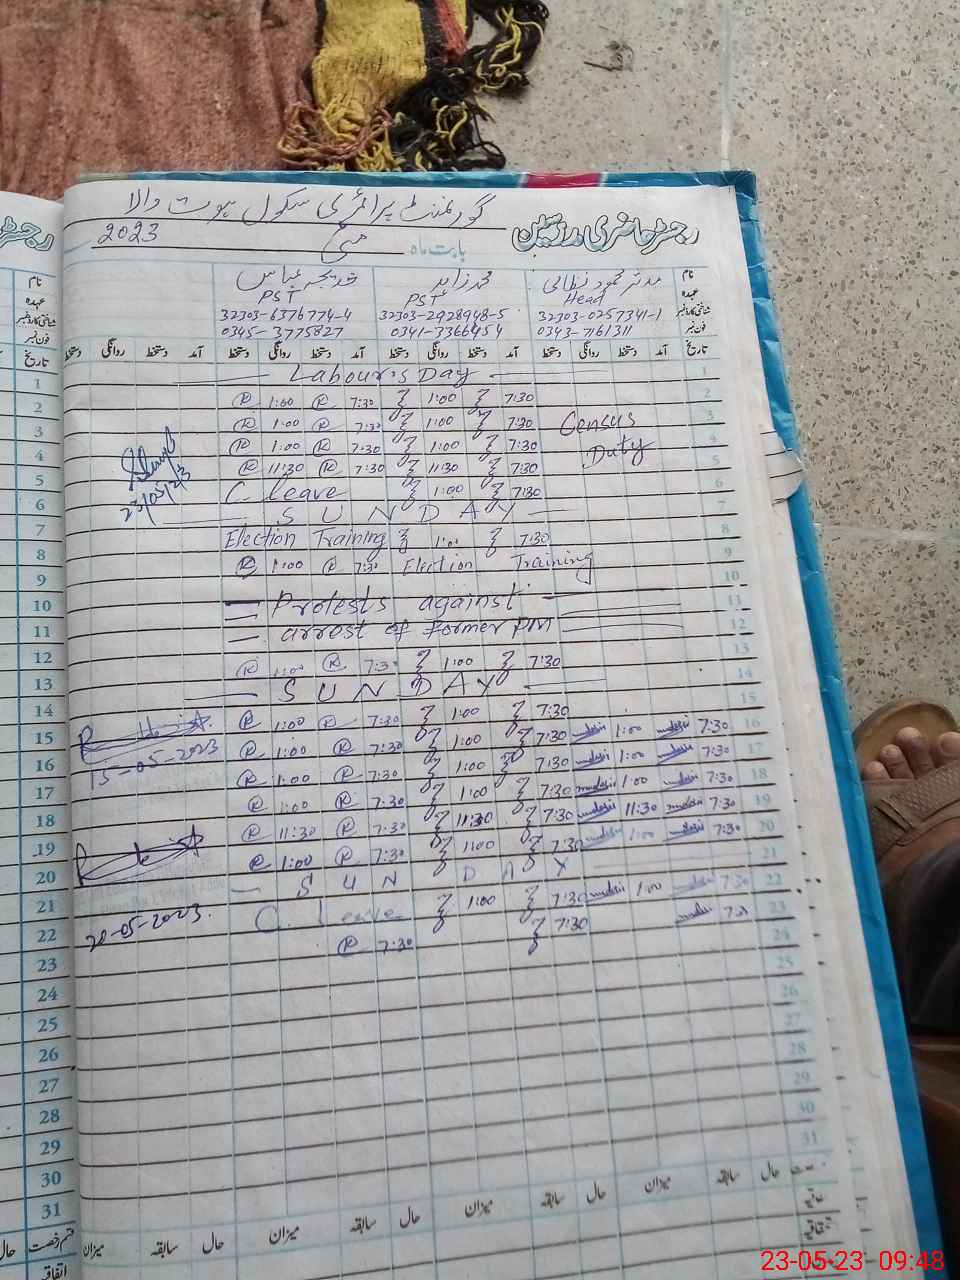 گورنمنٹ پرائمری سکول ہوت والا
رجسٹر حاضری مدرسین
بابت ماہ مئی 2023
نام
مدثر محمود نظامی
محمد زاہد
خدیجہ عباس
عہدہ
Head
PST
PST
شناختی کارڈ نمبر
32303-0257341-1
32303-2928948-5
32303-6376774-4
فون نمبر
0343-7161311
0341-7366454
0345-3775827
تاریخ آمد دستخط روانگی دستخط آمد دستخط روانگی دستخط آمد دستخط روانگی دستخط
1 Labour's Day
2 R 1:00 R 7:30 1:00 7:30
3 R 1:00 R 7:30 1:00 7:30 Census
4 R 1:00 R 7:30 1:00 7:30 Duty
5 R 11:30 R 7:30 11:30 7:30
6 C. leave 1:00 7:30
23/05/23
7 SUNDAY
8 Election Training 1:00 7:30
9 R 1:00 R 7:30 Election Training
10
11 Protests against
12 arrest of former PM
13 R 1:00 R 7:30 1:00 7:30
14 SUNDAY
15 R 1:00 R 7:30 1:00 7:30
15-05-2023
16 R 1:00 R 7:30 1:00 7:30 1:00 7:30
17 R 1:00 R 7:30 1:00 7:30 1:00 7:30
18 R 1:00 R 7:30 1:00 7:30 1:00 7:30
19 R 11:30 R 7:30 11:30 7:30 11:30 7:30
20 R 1:00 R 7:30 1:00 7:30 1:00 7:30
21 SUNDAY
20-05-2023.
22 C. leave 1:00 7:30 1:00 7:30
23 R 7:30 7:30 7:30
24
25
26
27
28
29
30
31
حال سابقہ میزان حال سابقہ میزان حال سابقہ میزان حال سابقہ میزان
قسم رخصت
اتفاقیہ
23-05-23 09:48